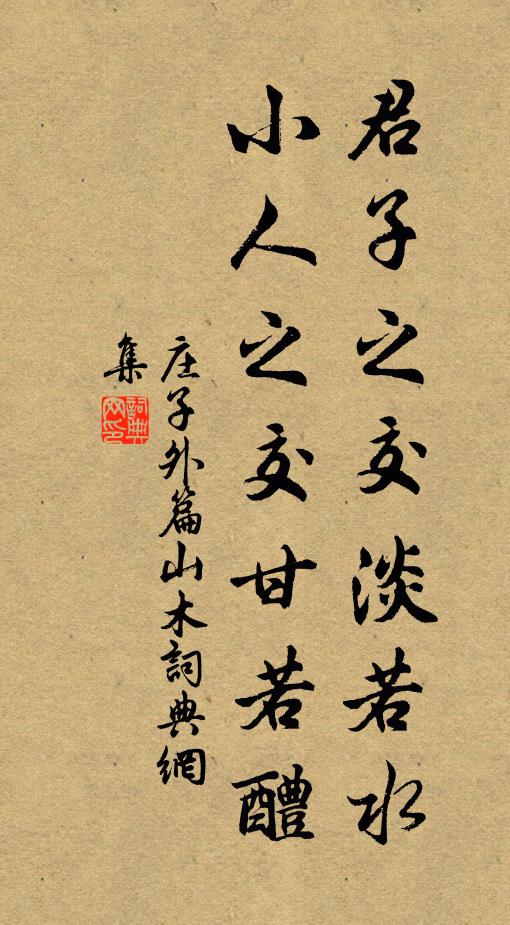 君子之交淡若水
小人之交甘若醴
庄子外篇山木詞典網
集
詞典网印